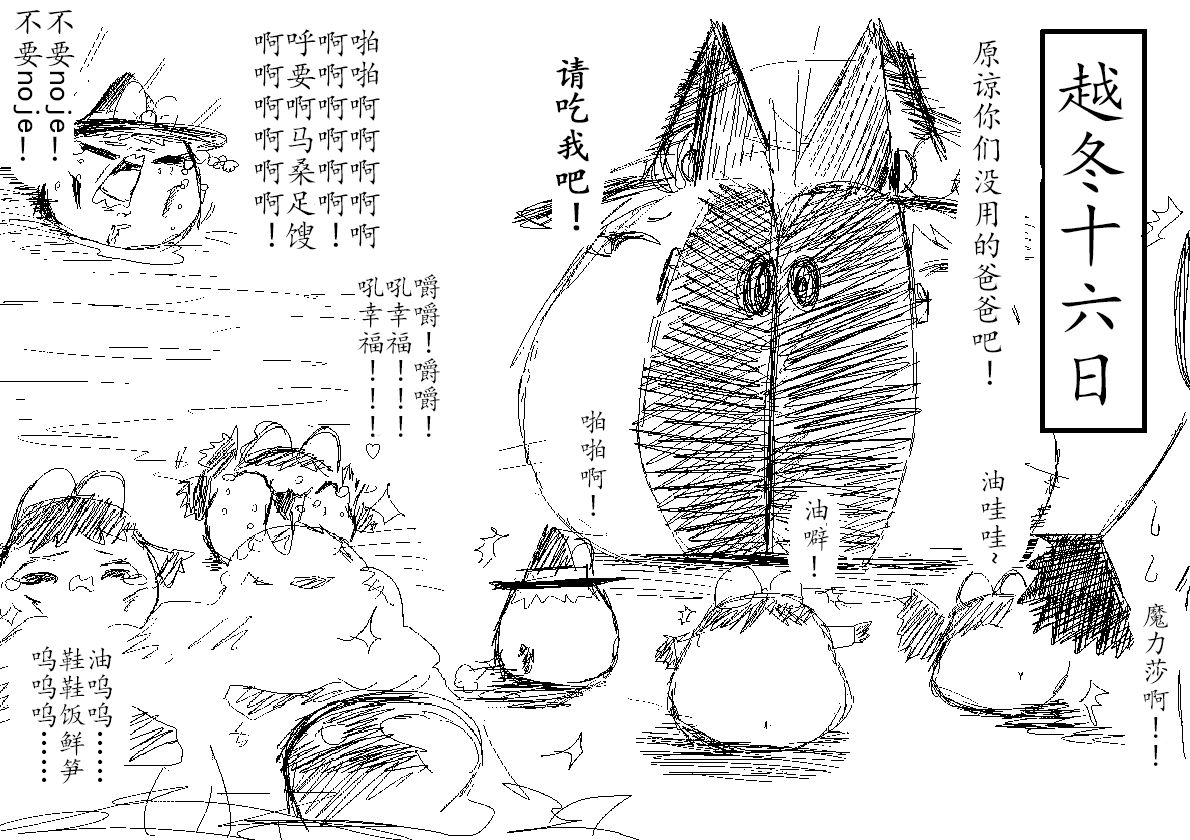 越冬十六日
原谅你们没用的爸爸吧！
请吃我吧！
啪啪啊啊啊啊啊
啊啊啊啊啊啊！
呼要啊马桑足馊
啊啊啊啊啊啊！
不要noje！
不要noje！
嚼嚼！嚼嚼！
吼幸福！！！
吼幸福！！！♡
啪啪啊！
油噼！
油哇哇~
魔力莎啊！！
油呜呜……
鞋鞋饭鲜笋
呜呜呜……